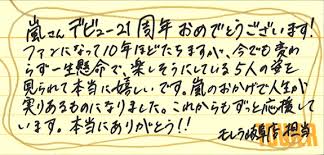 嵐さん デビュー21周年 おめでとうございます!
ファンになって10年ほどたちますが、今でも変わ
らず一生懸命で、楽しそうにしている5人の姿を
見られて本当に嬉しいです。嵐のおかげで人生が
実りあるものになりました。これからもずっと応援して
います。本当にありがとう!!
店担当
TOWER